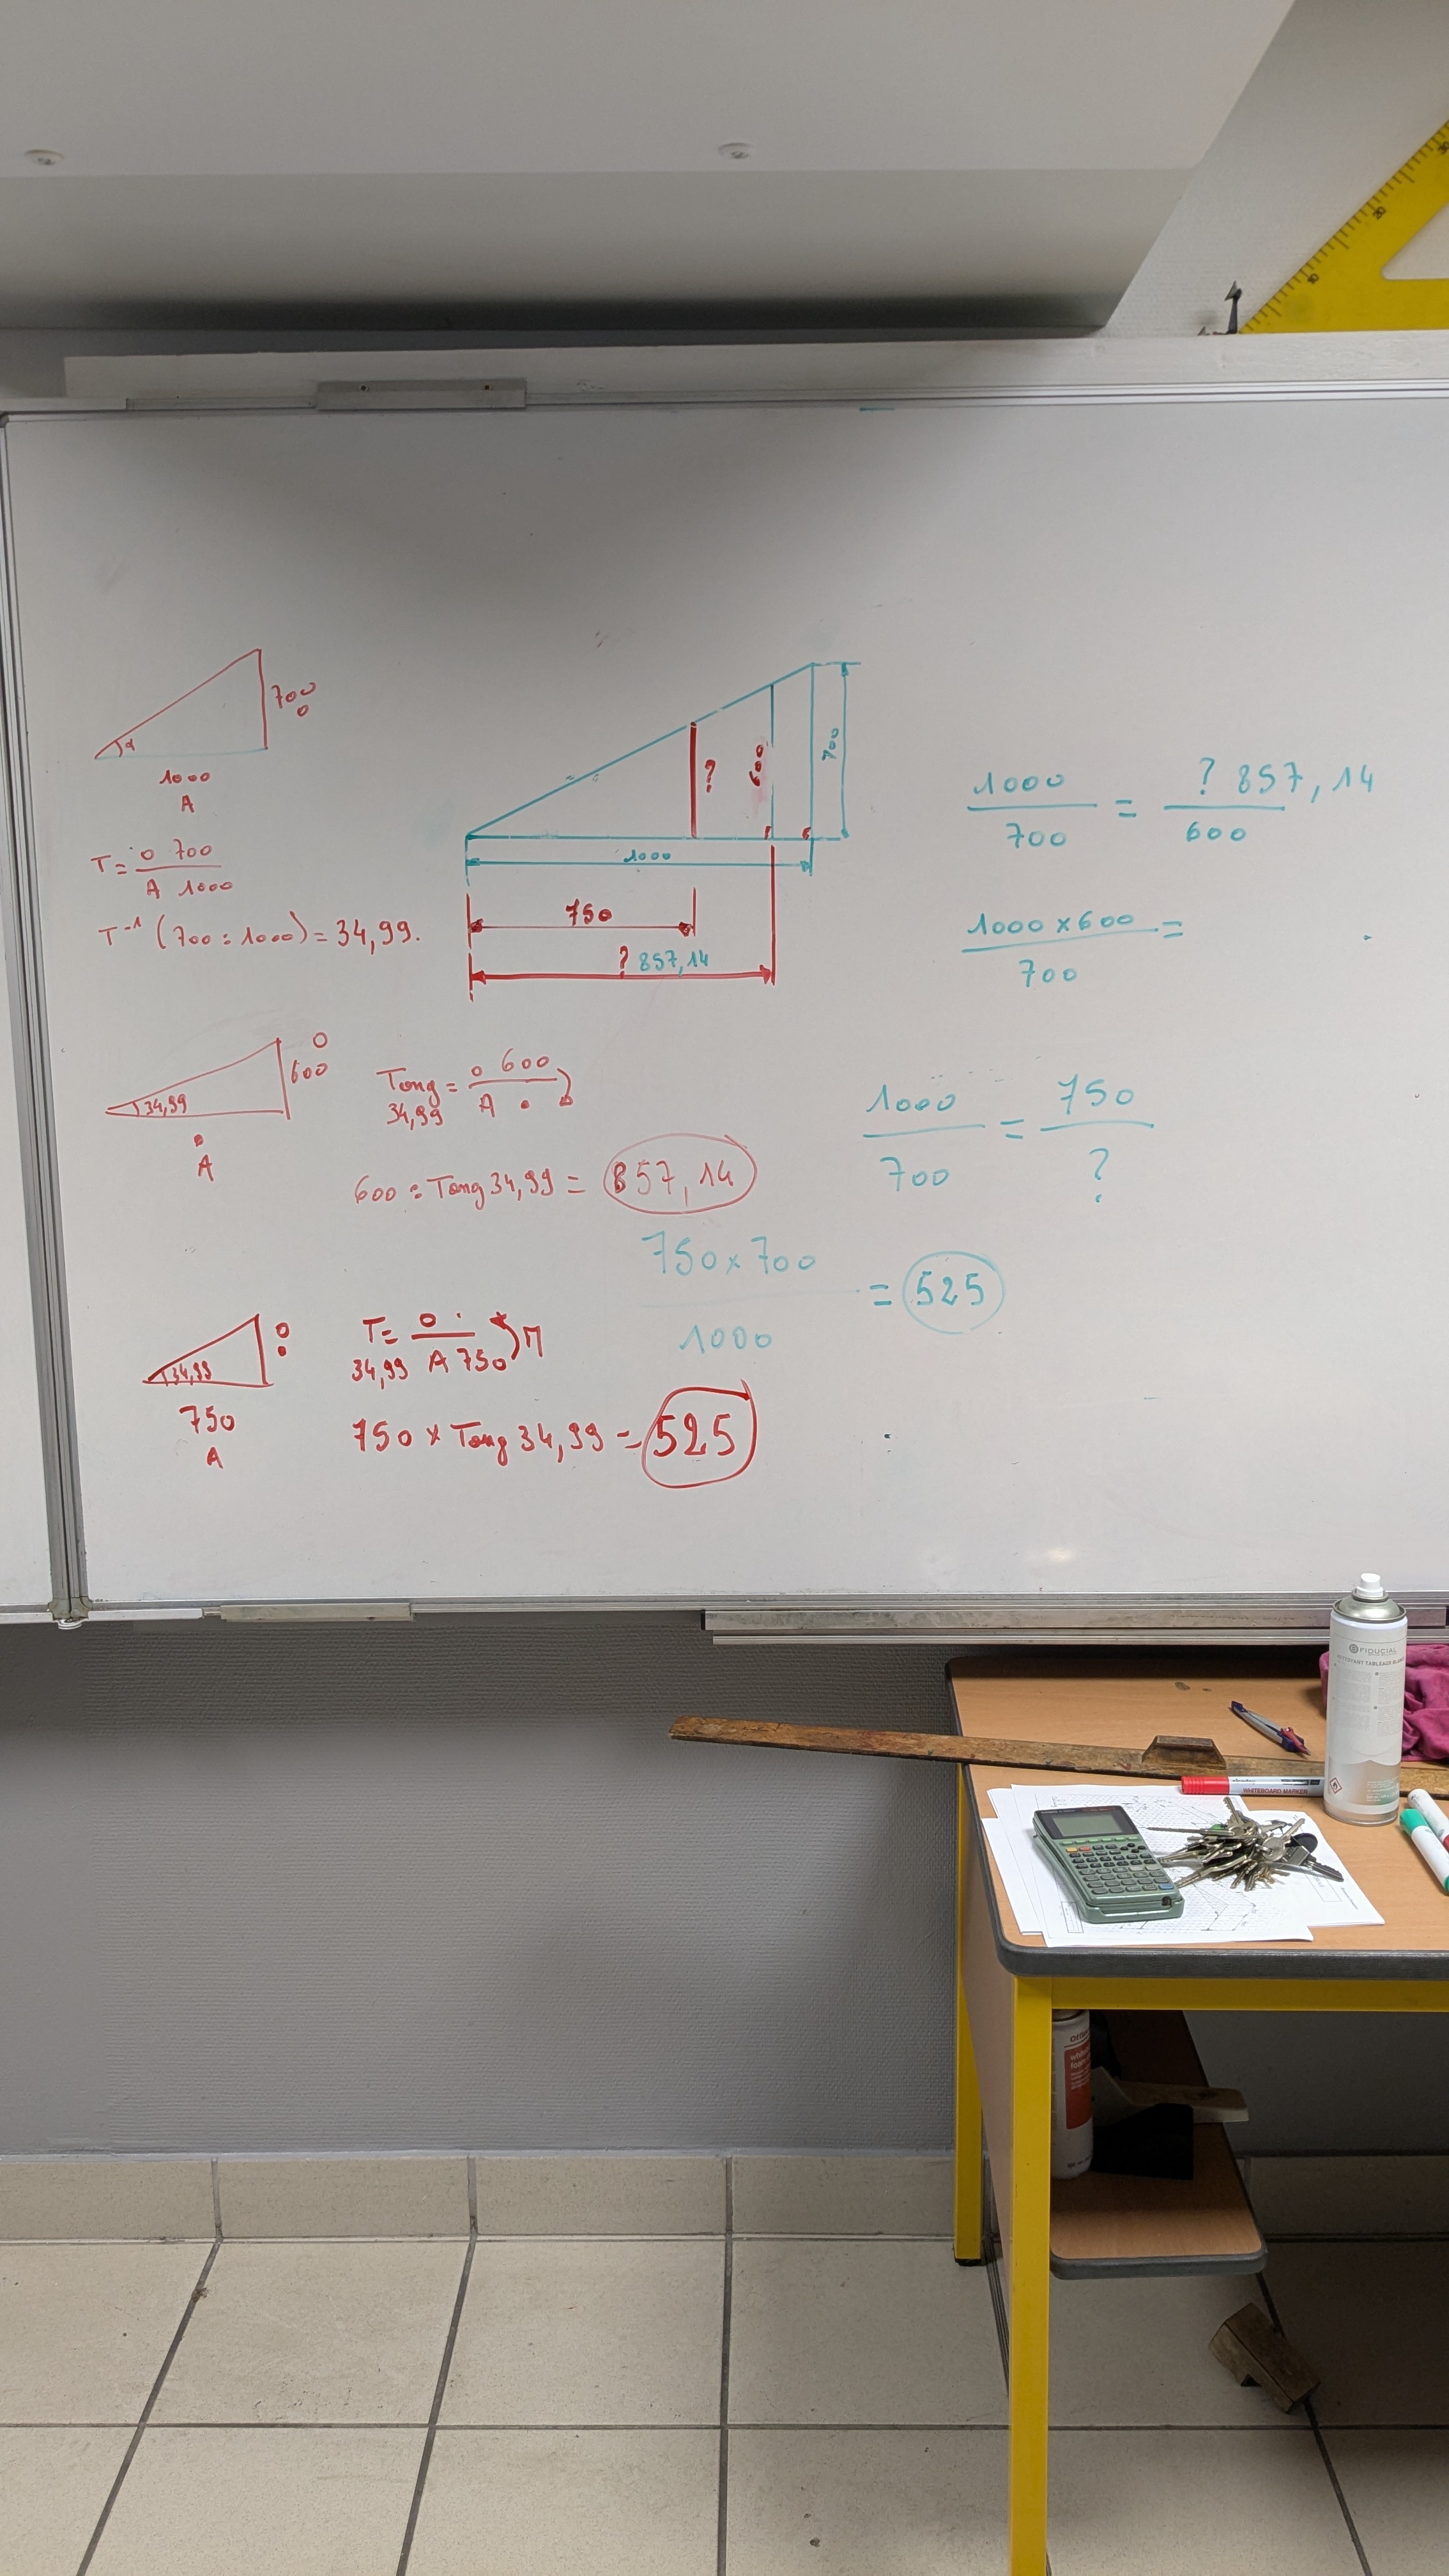 700
O
α
1000
A
T = O 700
A 1000
T⁻¹ (700 : 1000) = 34,99.
?
600
700
1000
750
? 857,14
1000 = ? 857,14
700 600
1000 x 600 =
700
O
600
34,99
A
Tang = O 600
34,99 A •
600 : Tang 34,99 = 857,14
1000 = 750
700 ?
750 x 700 = 525
1000
O
34,99
750
A
T = O •
34,99 A 750
750 x Tang 34,99 = 525
FIDUCIAL
NETTOYANT TABLEAUX BLANCS
WHITEBOARD MARKER
10
20
30